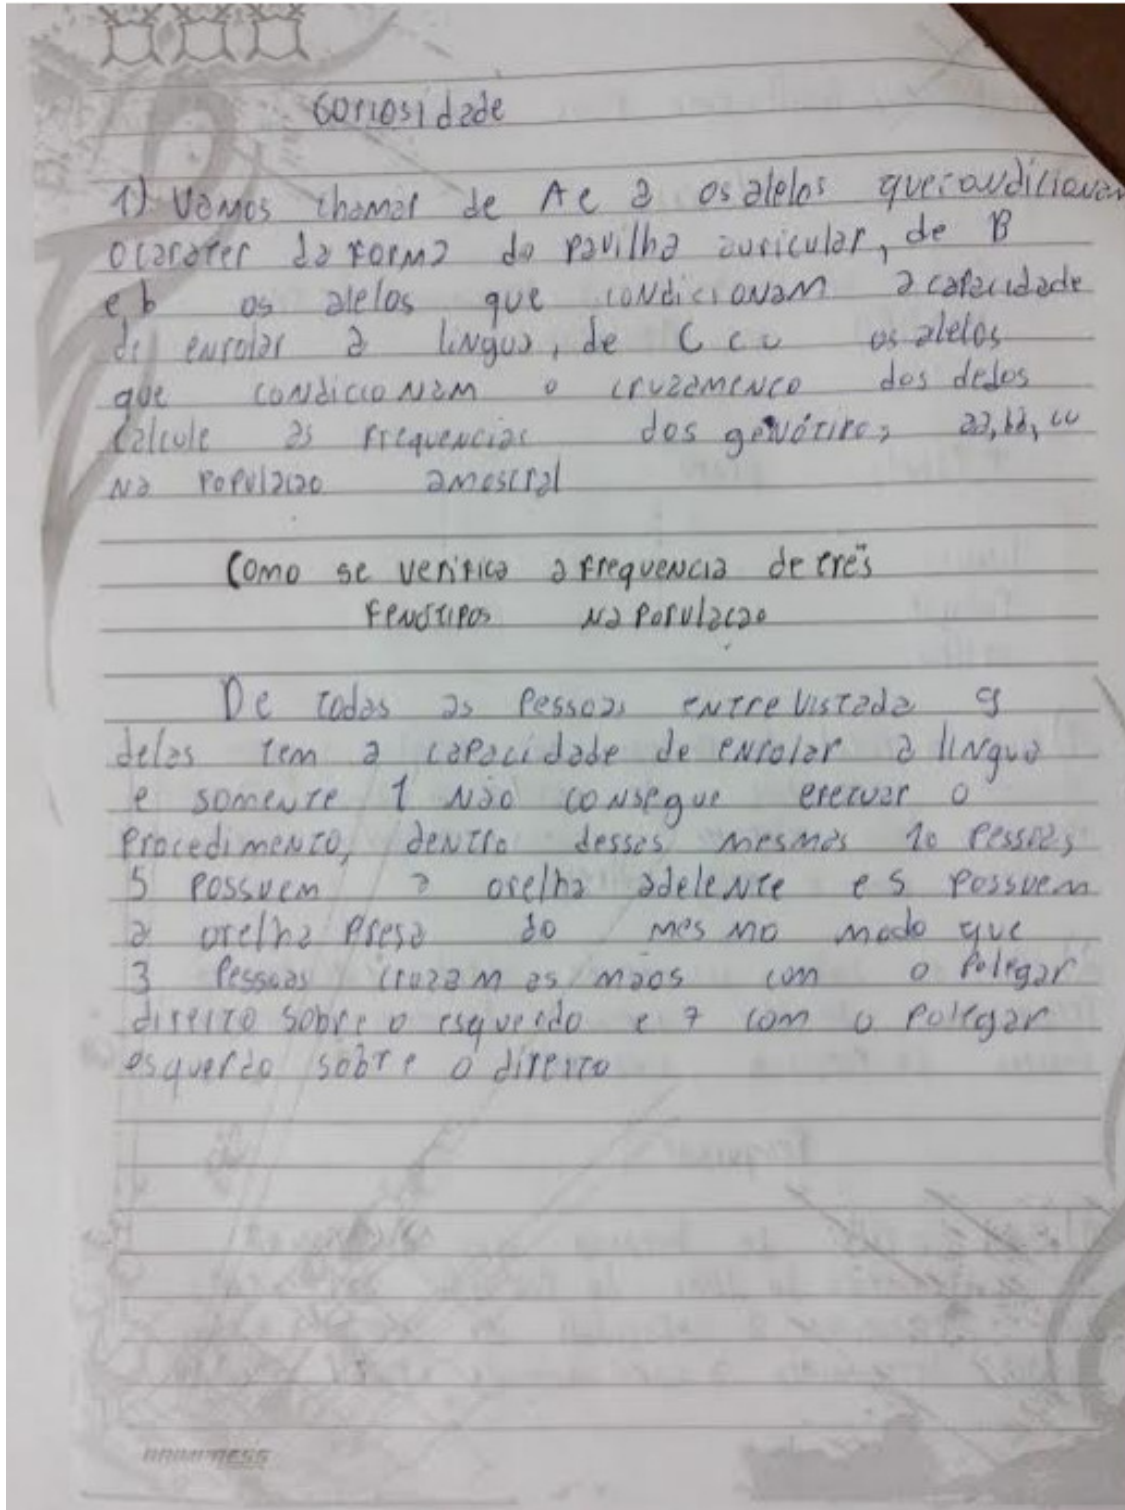 Coriosidade
1) Vamos chamar de A e a os alelos que condicionam
o carater da forma do pavilha auricular, de B
e b os alelos que condicionam a capacidade
de enrolar a lingua, de C e c os alelos
que condicionam o cruzamento dos dedos
Calcule as frequencias dos genótipos aa, bb, cc
na populacao amostral
Como se verifica a frequencia de três
fenótipos na populacao
De todas as pessoas entrevistada 9
delas tem a capacidade de enrolar a lingua
e somente 1 não consegue efetuar o
procedimento, dentro desses mesmas 10 pessoas
5 possuem a orelha adelente e 5 possuem
a orelha presa do mesmo modo que
3 pessoas cruzam as mãos com o polegar
direito sobre o esquerdo e 7 com o polegar
esquerdo sobre o direito